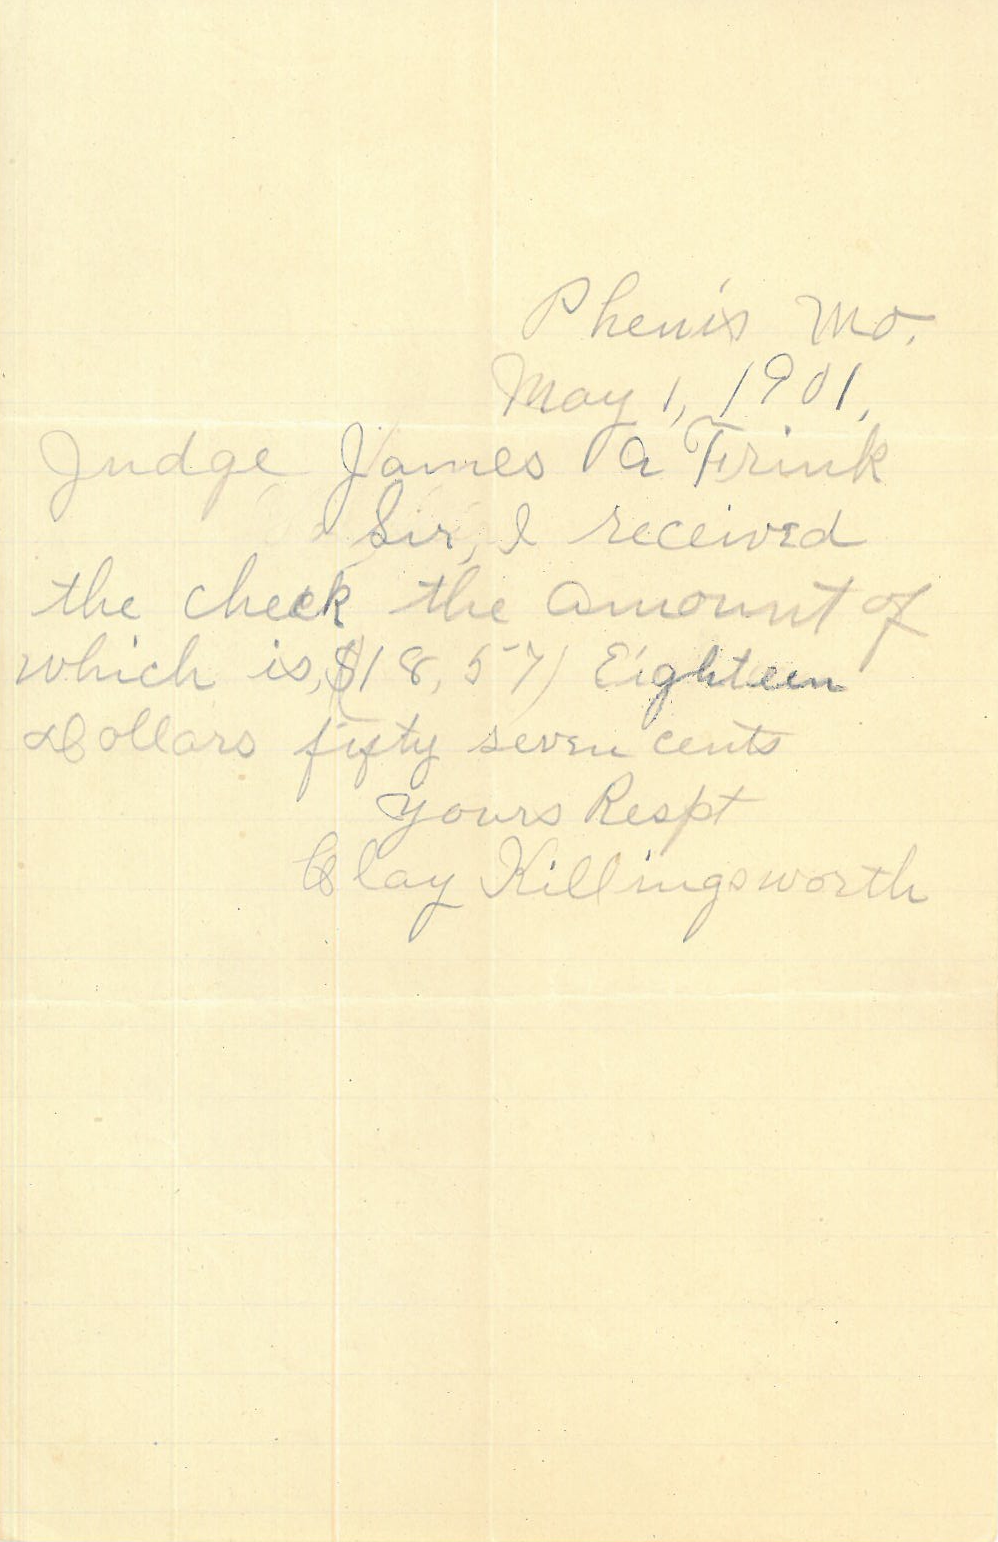 Phenix Mo.
May 1, 1901,
Judge James A Frink
Sir, I received
the check the amount of
which is, $(18,57) Eighteen
Dollars fifty seven cents
Yours Respt
Clay Killingsworth